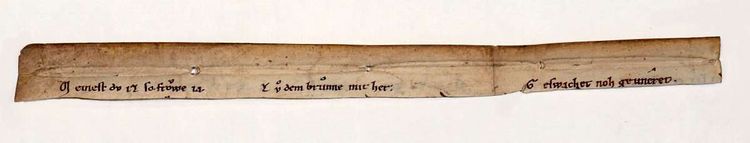 Meinest dv iz so frowe ia zv dem brunne mit her: Geswachet noh geuneret.